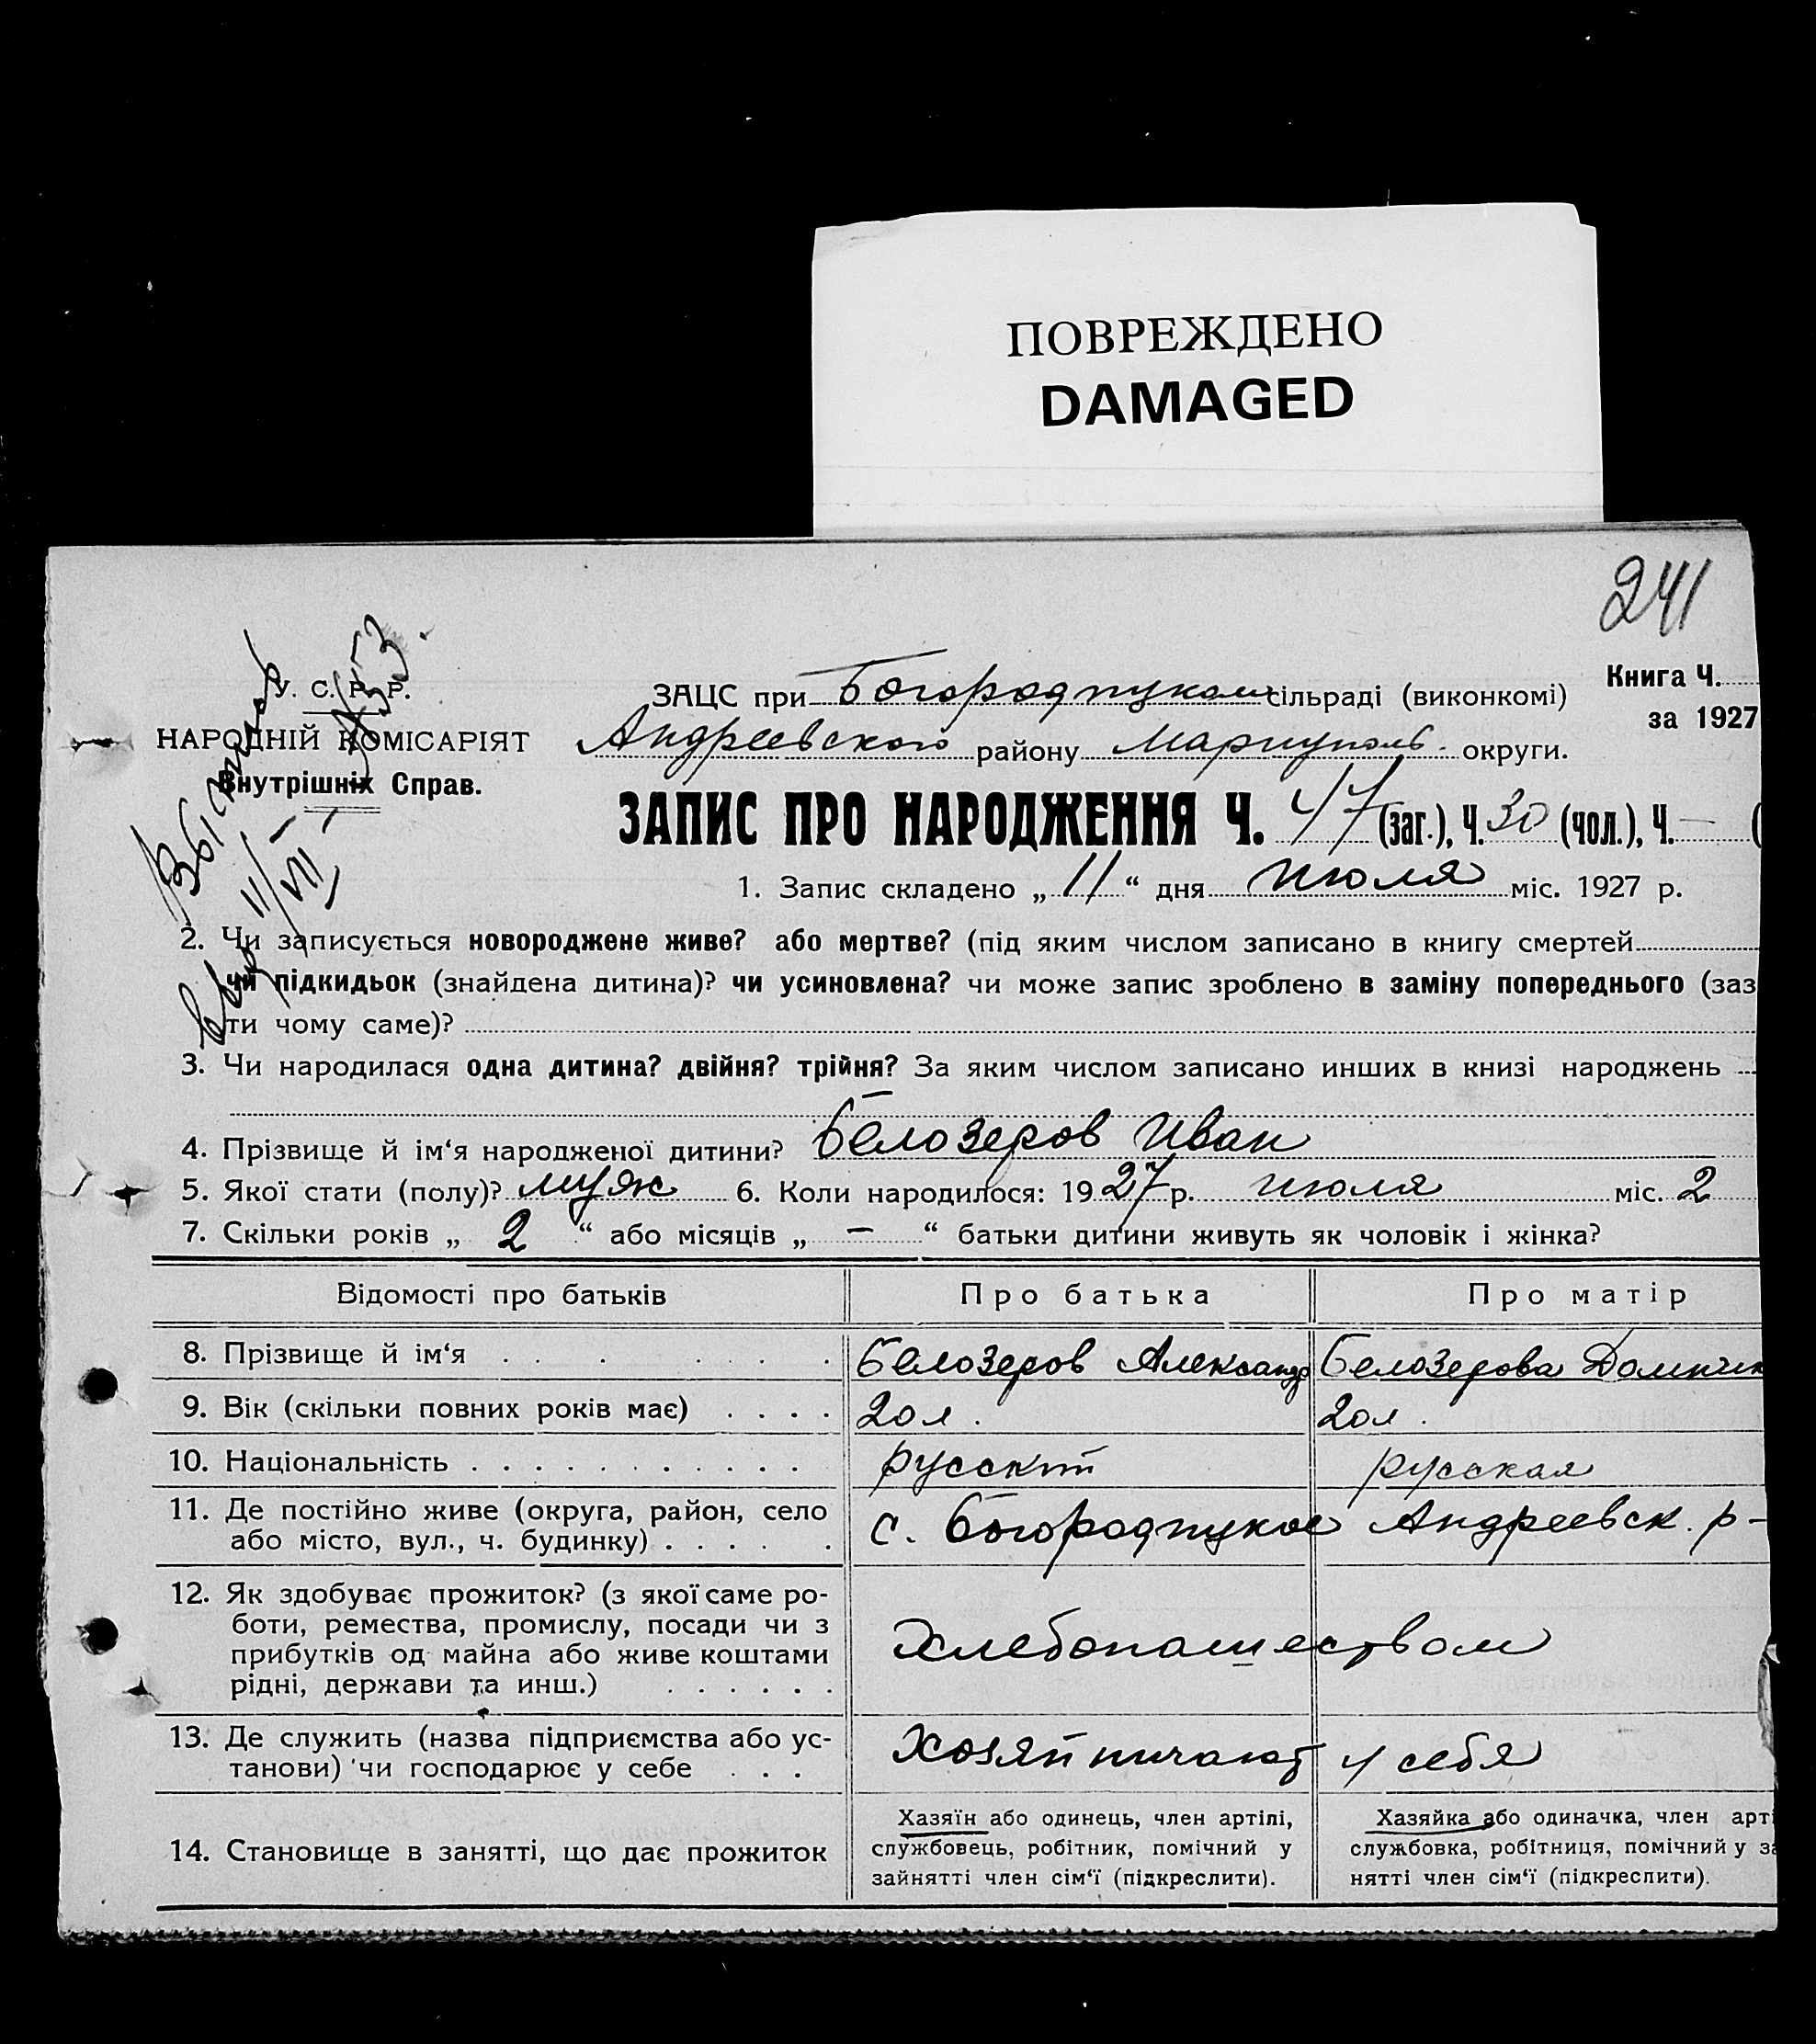 ПОВРЕЖДЕНО
DAMAGED
241
У. С. Р. Р.
НАРОДНІЙ КОМІСАРІЯТ
Внутрішніх Справ.
ЗАЦС при Богородицком сільраді (виконкомі)
Книга Ч.
за 1927
Андреевского району Мариуполь. округи.
ЗАПИС ПРО НАРОДЖЕННЯ Ч. 47 (заг.), Ч. 30 (чол.), Ч. — (
1. Запис складено „ 11 “ дня июля міс. 1927 р.
2. Чи записується новороджене живе? або мертве? (під яким числом записано в книгу смертей
чи підкидьок (знайдена дитина)? чи усиновлена? чи може запис зроблено в заміну попереднього (заз
ти чому саме)?
3. Чи народилася одна дитина? двійня? трійня? За яким числом записано инших в книзі народжень
4. Прізвище й ім‘я народженої дитини? Белозеров Иван
5. Якої стати (полу)? муж 6. Коли народилося: 1927 р. июля міс. 2
7. Скільки років „ 2 “ або місяців „ — “ батьки дитини живуть як чоловік і жінка?
Відомості про батьків Про батька Про матір
8. Прізвище й ім‘я Белозеров Александр Белозерова Домник
9. Вік (скільки повних років має) 20 л. 20 л.
10. Національність русский русская
11. Де постійно живе (округа, район, село
або місто, вул., ч. будинку) с. Богородицкое Андреевск. р-
12. Як здобуває прожиток? (з якої саме ро-
боти, ремества, промислу, посади чи з
прибутків од майна або живе коштами
рідні, держави та инш.)
Хлебопашеством
13. Де служить (назва підприємства або ус-
танови) чи господарює у себе
Хозяйничают у себя
14. Становище в занятті, що дає прожиток
Хазяїн або одинець, член артілі,
службовець, робітник, помічний у
зайнятті член сім‘ї (підкреслити).
Хазяйка або одиначка, член арті
службовка, робітниця, помічний у за
нятті член сім‘ї (підкреслити).